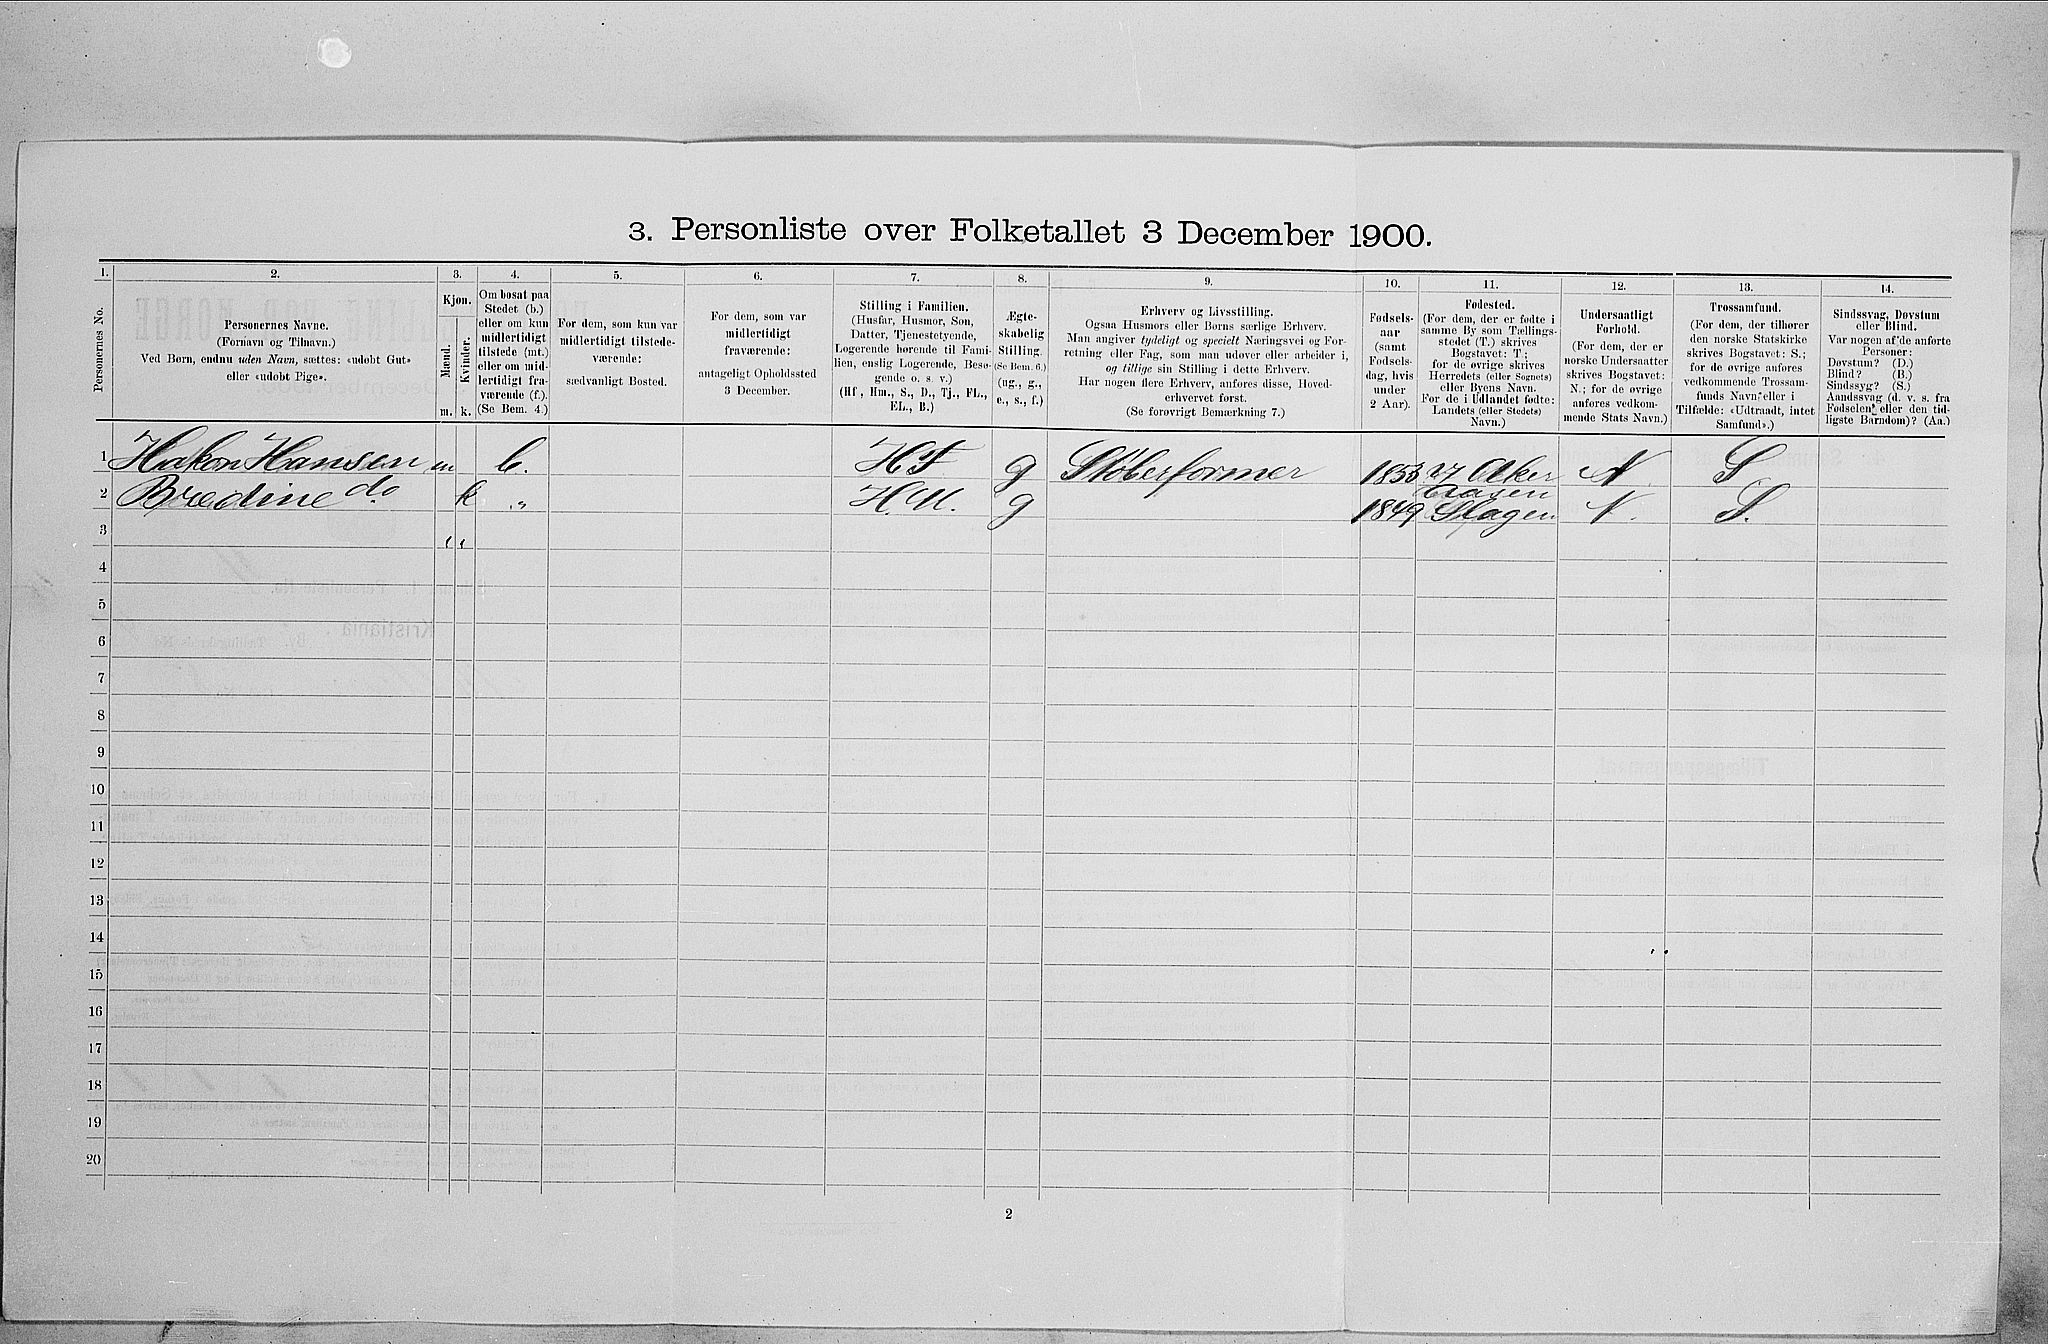 3. Personliste over Folketallet 3 December 1900.
1. 2. 3. 4. 5. 6. 7. 8. 9. 10. 11. 12. 13. 14.
Personernes No.
Personernes Navne.
(Fornavn og Tilnavn.)
Ved Børn, endnu uden Navn, sættes: «udøbt Gut»
eller «udøbt Pige».
Kjøn.
Mænd.
Kvinder.
m. k.
Om bosat paa
Stedet (b.)
eller om kun
midlertidigt
tilstede (mt.)
eller om mid-
lertidigt fra-
værende (f.).
(Se Bem. 4.)
For dem, som kun var
midlertidigt tilstede-
værende:
sædvanligt Bosted.
For dem, som var
midlertidigt
fraværende:
antageligt Opholdssted
3 December.
Stilling i Familien.
(Husfar, Husmor, Søn,
Datter, Tjenestetyende,
Logerende hørende til Fami-
lien, enslig Logerende, Besø-
gende o. s. v.)
(Hf, Hm., S., D., Tj., FL.,
EL., B.)
Ægte-
skabelig
Stilling.
(Se Bem. 6.)
(ug., g.,
e., s., f.)
Erhverv og Livsstilling.
Ogsaa Husmors eller Børns særlige Erhverv.
Man angiver tydeligt og specielt Næringsvei og For-
retning eller Fag, som man udøver eller arbeider i,
og tillige sin Stilling i dette Erhverv.
Har nogen flere Erhverv, anføres disse, Hoved-
erhvervet først.
(Se forøvrigt Bemærkning 7.)
Fødsels-
aar
(samt
Fødsels-
dag, hvis
under
2 Aar).
Fødested.
(For dem, der er fødte i
samme By som Tællings-
stedet (T.) skrives
Bogstavet: T;
for de øvrige skrives
Herredets (eller Sognets)
eller Byens Navn.
For de i Udlandet fødte:
Landets (eller Stedets)
Navn.)
Undersaatligt
Forhold.
(For dem, der er
norske Undersaatter
skrives Bogstavet:
N.; for de øvrige
anføres vedkom-
mende Stats Navn.)
Trossamfund.
(For dem, der tilhører
den norske Statskirke
skrives Bogstavet: S.;
for de øvrige anføres
vedkommende Trossam-
funds Navn, eller i
Tilfælde: «Udtraadt, intet
Samfund».)
Sindssvag, Døvstum
eller Blind.
Var nogen af de anførte
Personer:
Døvstum? (D.)
Blind? (B.)
Sindssyg? (S.)
Aandssvag (d. v. s. fra
Fødselen eller den tid-
ligste Barndom)? (Aa.)
1 Hakon Hansen m b. HF g Støberformer 1853 Aker N S
2 Bredine do k „ H.M. g 1849 Slagen N. S.
3
4
5
6
7
8
9
10
11
12
13
14
15
16
17
18
19
20
2